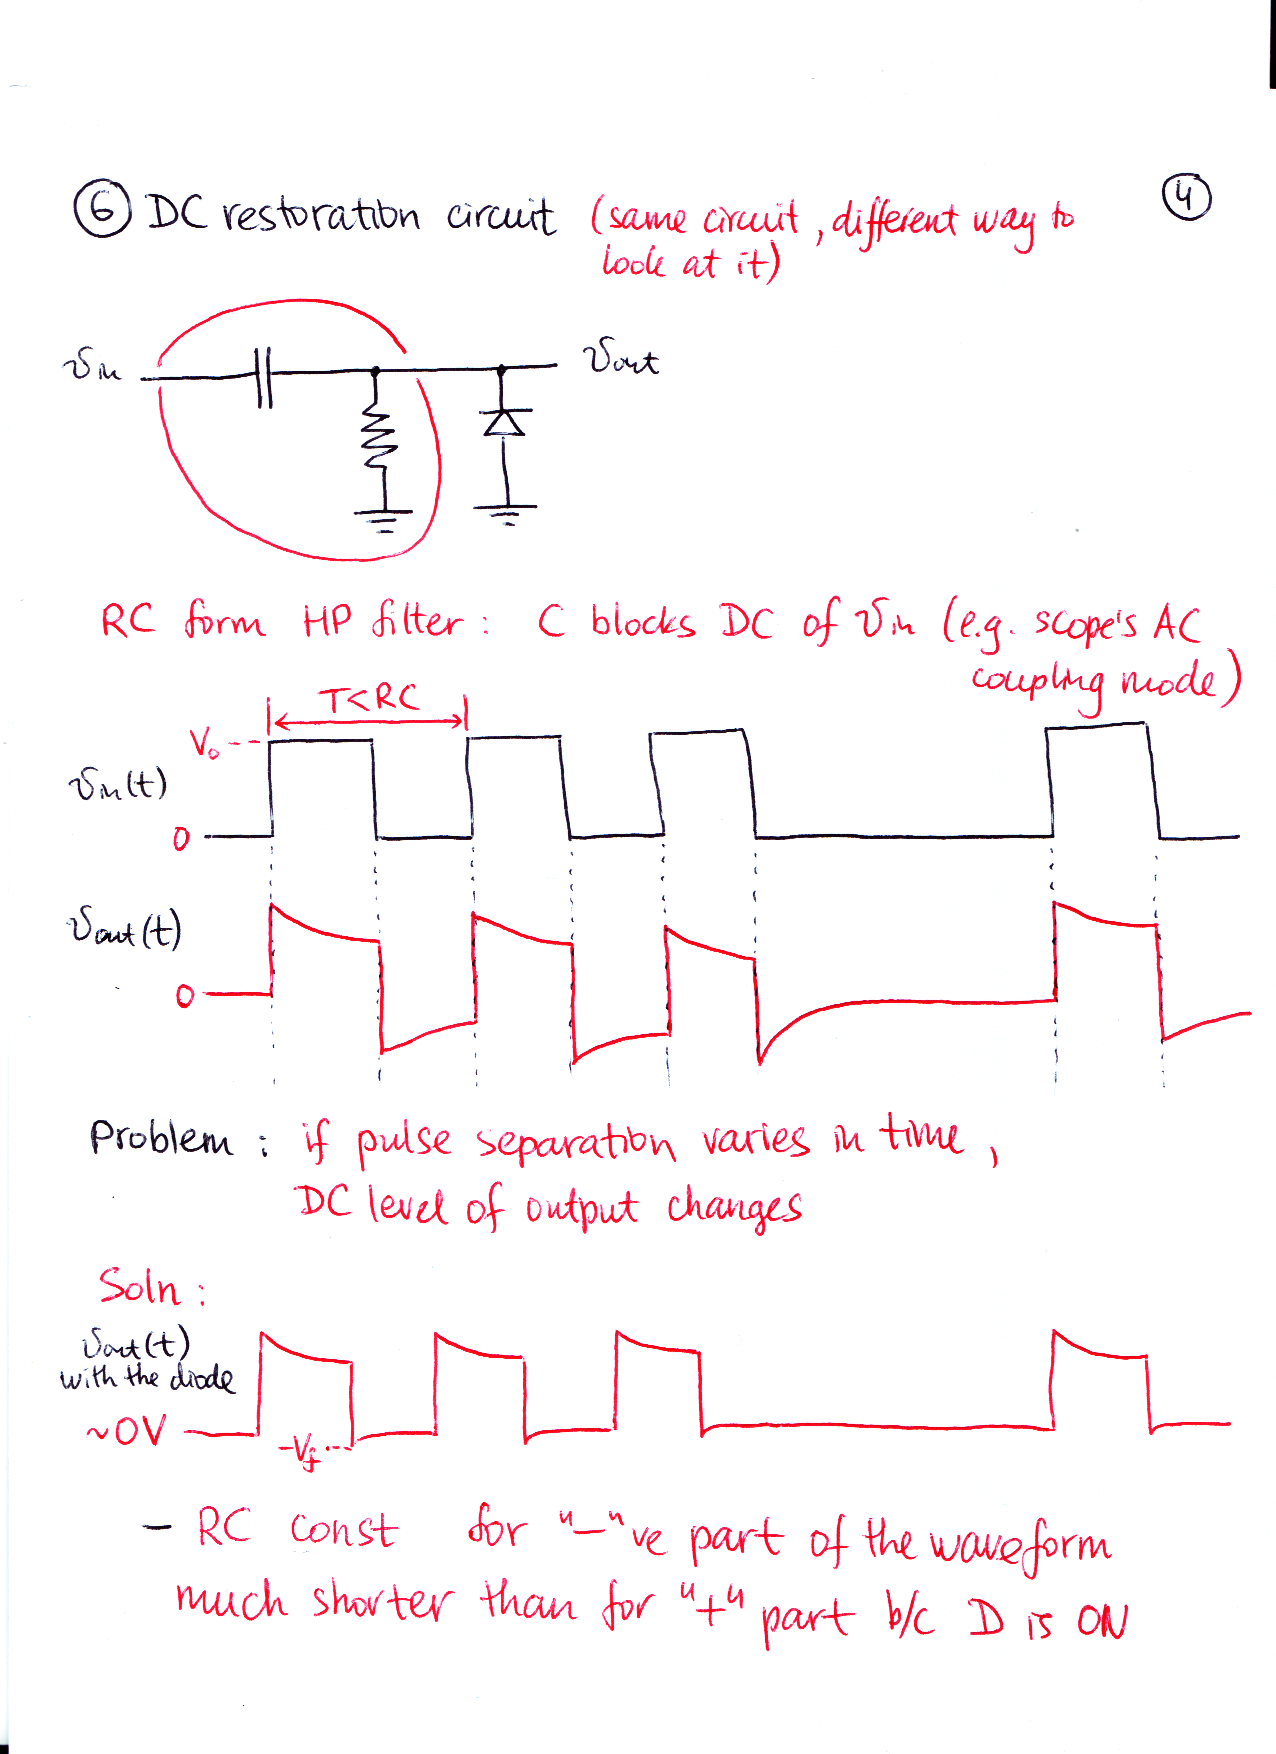 ⑥ DC restoration circuit (same circuit, different way to
look at it)
④
Vin
Vout
RC form HP filter: C blocks DC of Vin (e.g. scope's AC
coupling mode)
T<RC
Vo
Vin(t)
0
Vout(t)
0
Problem: if pulse separation varies in time,
DC level of output changes
Soln:
Vout(t)
with the diode
~0V
-Vf
- RC const for "-"ve part of the waveform
much shorter than for "+" part b/c D is ON